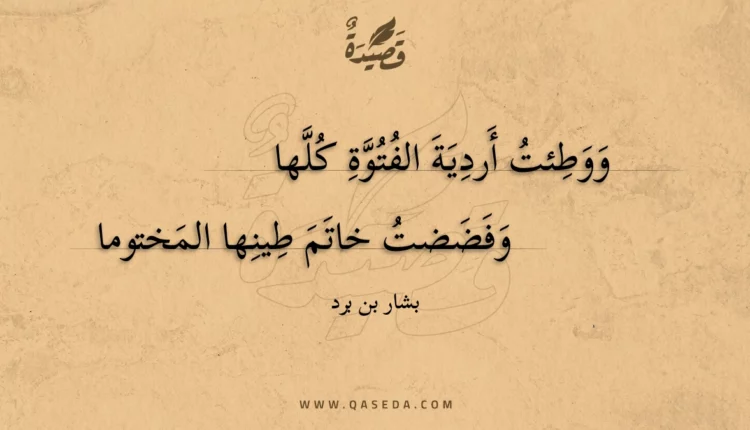 قَصِيدَةٌ
وَوَطِئتُ أَردِيَةَ الفُتُوَّةِ كُلَّها
وَفَضَضتُ خاتَمَ طِينِها المَختوما
بشار بن برد
WWW.QASEDA.COM